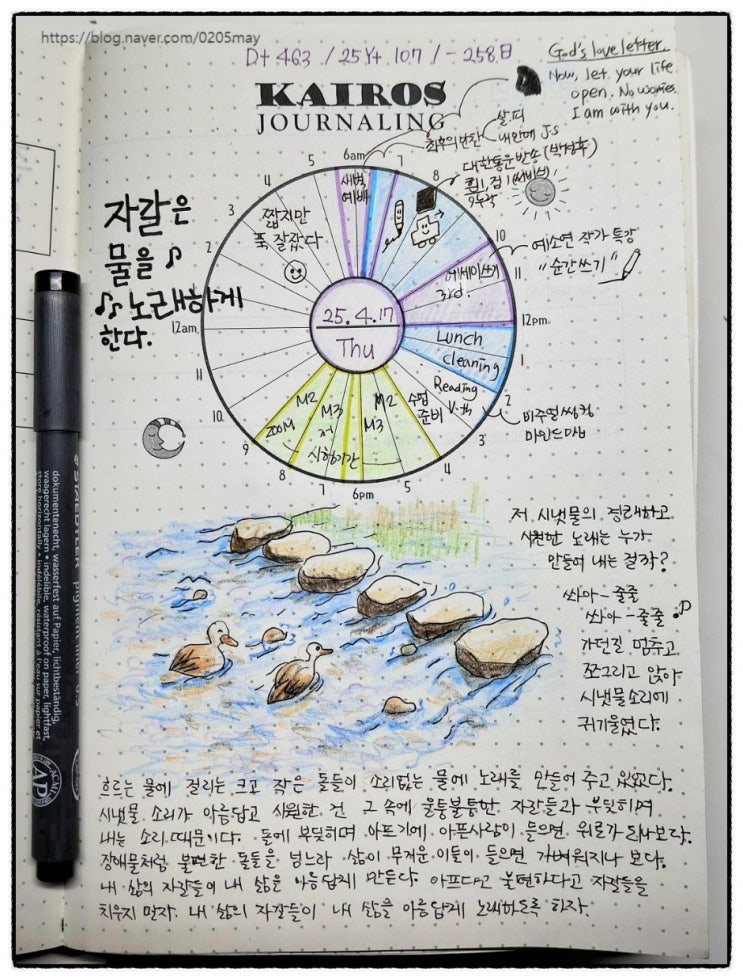 https://blog.naver.com/0205may
D+463 / 25Y+107 / -258日
God's love letter.
Now, let your life
open. No worries.
I am with you.
KAIROS
JOURNALING
살.피
최후의 만찬
내안에 J.S
대한동운방송 (박정후)
6am
7
8
10
11
12pm
1
2
3
4
5
6pm
7
8
9
10
11
12am
2
3
4
5
새벽
예배
짧지만
푹 잘잤다
에세이쓰기
3rd.
예소연 작가 특강
"순간쓰기"
25.4.17
Thu
Lunch
cleaning
Reading
수업
준비
비주얼씽킹
마인드맵
M2
M3
M2
M3
ZOOM
저
시험기간
자갈은
물을
노래하게
한다.
저 시냇물의 경쾌하고
시원한 노래는 누가
만들어 내는 걸까?
쏴아~ 줄줄
쏴아~ 줄줄
가던길 멈추고
쪼그리고 앉아
시냇물소리에
귀기울였다.
STAEDTLER pigment liner
dokumentenecht, wasserfest auf Papier, lichtbeständig,
waagerecht lagern • indelible, waterproof on paper, lightfast,
store horizontally • indélébile, résistant à l'eau sur papier et
AP
흐르는 물에 걸리는 크고 작은 돌들이 소리없는 물에 노래를 만들어 주고 있었다.
시냇물 소리가 아름답고 시원한 건 그 속에 울퉁불퉁한 자갈들과 부딪히며
내는 소리 때문이다. 돌에 부딪히며 아프기에 아픈사람이 들으면 위로가 되나보다.
장애물처럼 불편한 돌들을 넘느라 삶이 무거운 이들이 들으면 가벼워지나 보다.
내 삶의 자갈들이 내 삶을 아름답게 만든다. 아프다고 불편하다고 자갈들을
치우지 말자. 내 삶의 자갈들이 내 삶을 아름답게 노래하도록 하자.